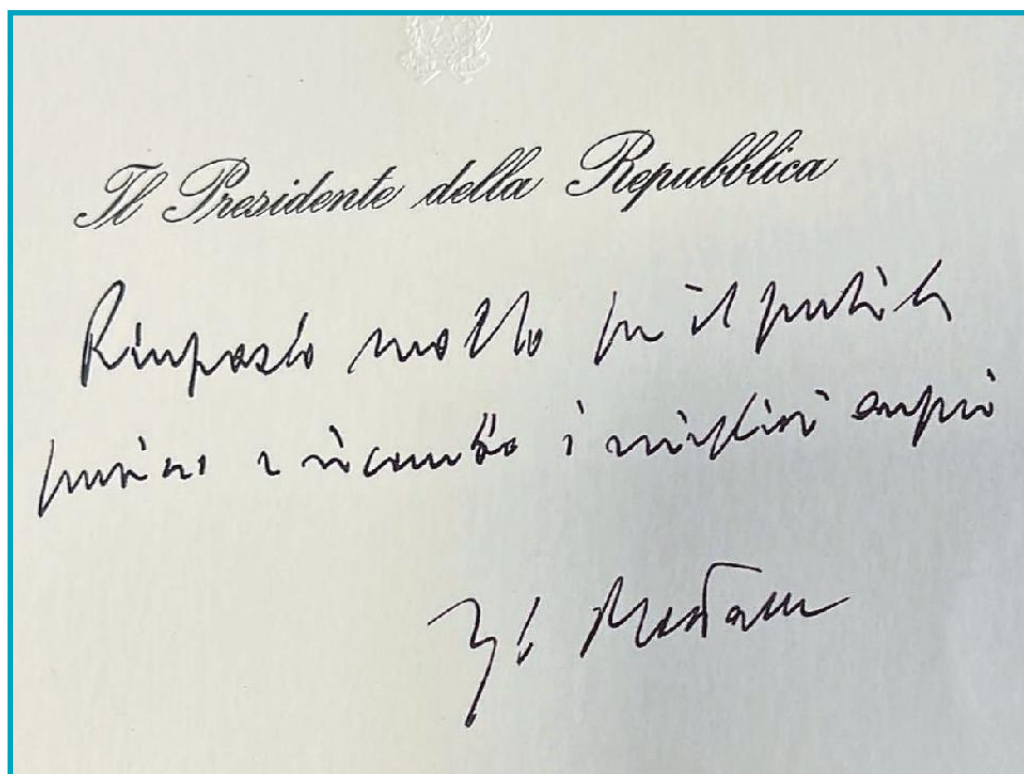 Il Presidente della Repubblica
Ringrazio molto per il gentile
pensiero e ricambio i migliori auguri
Mattarella